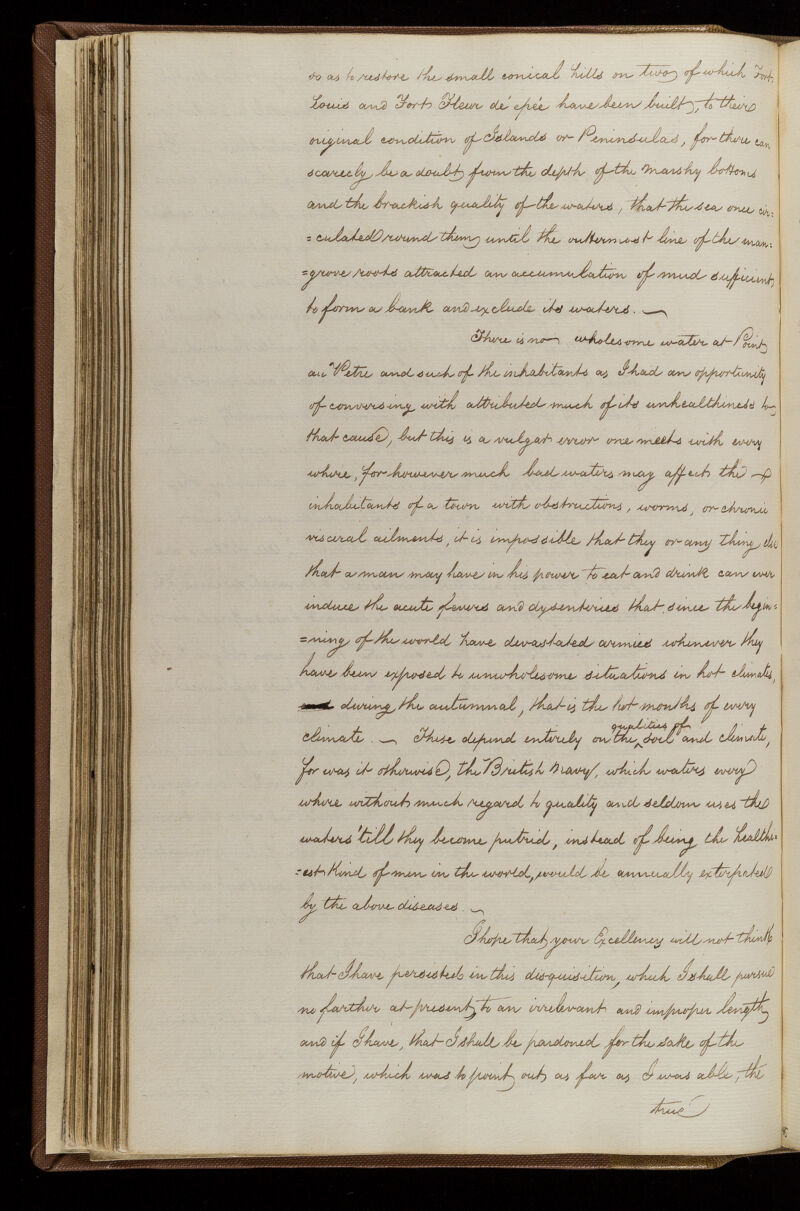 so as to restore the small conical hills on two, of which Fort
Louis and Fort Fleur dé epée have been built, to their
original condition of Islands or Peninsulas, for there can
scarcely be a doubt, from the depth of the marshy bottoms
and the brackish quality of the waters, that the sea once cir=
=culated round them, until the outtermost line of the man=
=grove roots attracted an accumulation of mud sufficient
to form a bank and exclude its waters. —
There is no wholesome water at Point
au Petre and such of the inhabitants as I had an opportunity
of conversing with attributed much of its unhealthiness to
that cause, but this is a vulgar error one meets with every
where, for however much bad waters may affect the
inhabitants of a town with obstructions, worms, or chronic
visceral ailments, it is impossible that they or any thing else
that a man may have in his power to eat and drink can ever
induce the acute fevers and dysenteries that since the begin=
=ning of the world have devastated armies whenever they
have been exposed to unwholesome situations in hot climates,
during the autumnal, that is the hot months of every
climate. — These depend entirely on the qualities of soil and climate,
for was it otherwise, the British Navy, which waters every
where without much regard to quality and seldom uses the
waters 'till they become putrid, instead of being the healthi=
=est kind of men in the world, would be annually extirpated
by the above diseases. —
I hope that your Excellency will not think
that I have persisted in this disquisition, which I shall pursue
no farther at present, to an irrelevant and improper length,
and if I have, that I shall be pardoned for the sake of the
motive, which was to point out as far as I was able, the
true